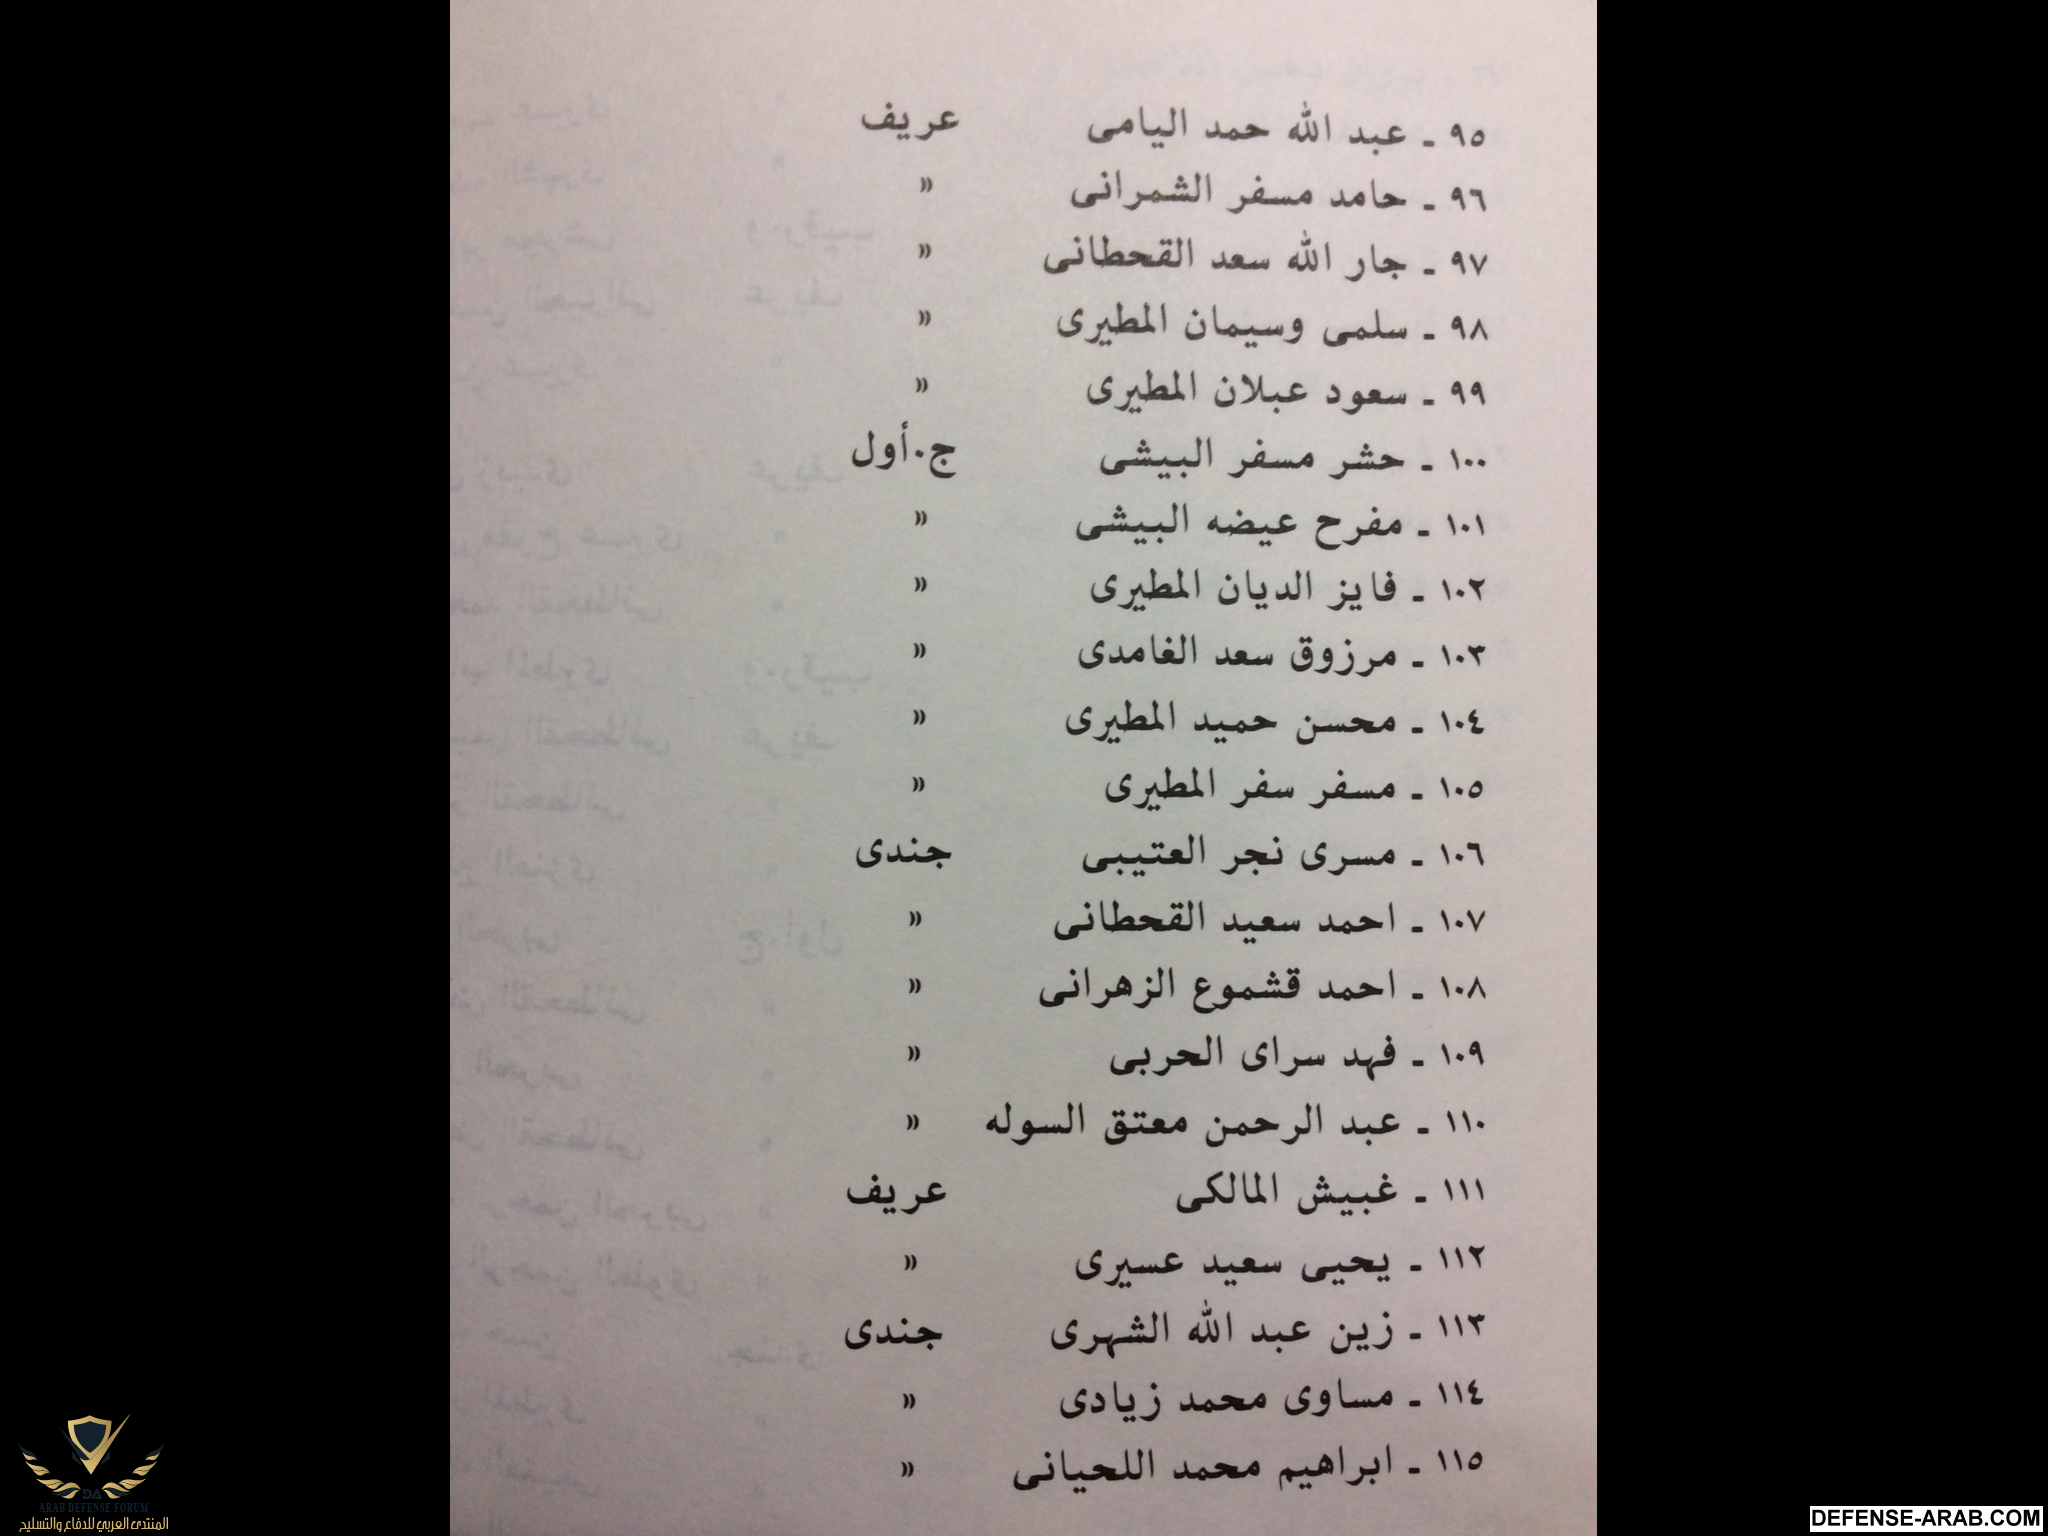 ٩٥ ـ عبد الله حمد اليامى عريف
٩٦ ـ حامد مسفر الشمرانى »
٩٧ ـ جار الله سعد القحطانى »
٩٨ ـ سلمى وسيمان المطيرى »
٩٩ ـ سعود عبلان المطيرى »
١٠٠ ـ حشر مسفر البيشى ج.أول
١٠١ ـ مفرح عيضه البيشى »
١٠٢ ـ فايز الديان المطيرى »
١٠٣ ـ مرزوق سعد الغامدى »
١٠٤ ـ محسن حميد المطيرى »
١٠٥ ـ مسفر سفر المطيرى »
١٠٦ ـ مسرى نجر العتيبى جندى
١٠٧ ـ احمد سعيد القحطانى »
١٠٨ ـ احمد قشموع الزهرانى »
١٠٩ ـ فهد سراى الحربى »
١١٠ ـ عبد الرحمن معتق السوله »
١١١ ـ غبيش المالكى عريف
١١٢ ـ يحيى سعيد عسيرى »
١١٣ ـ زين عبد الله الشهرى جندى
١١٤ ـ مساوى محمد زيادى »
١١٥ ـ ابراهيم محمد اللحيانى »
DA
ARAB DEFENSE FORUM
المنتدى العربي للدفاع والتسليح
DEFENSE-ARAB.COM